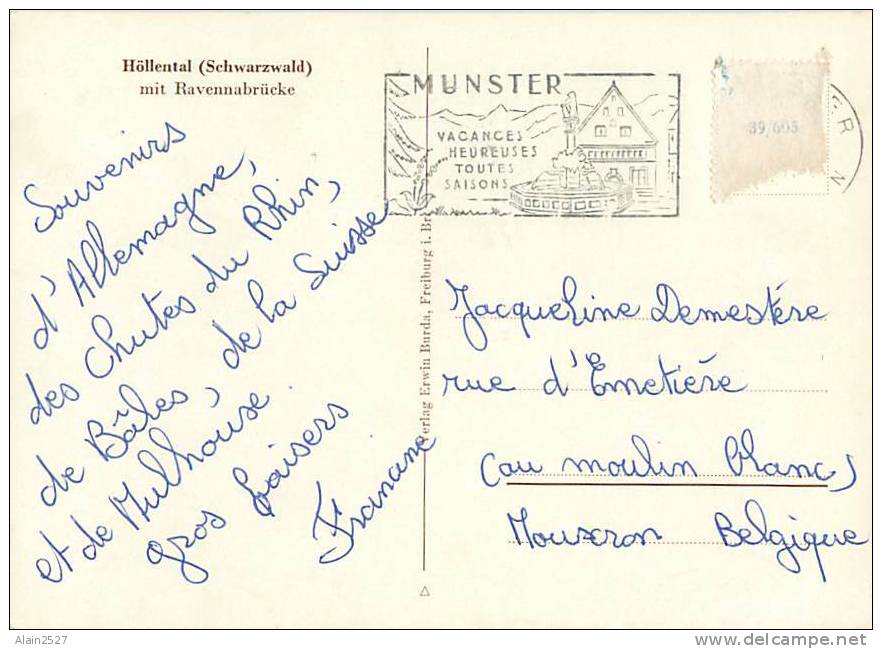 Höllental (Schwarzwald)
mit Ravennabrücke
MUNSTER
VACANCES
HEUREUSES
TOUTES
SAISONS
39/603
Souvenirs
d'Allemagne,
des Chutes du Rhin,
de Bâles, de la Suisse
et de Mulhouse.
gros baisers
Francine
Verlag Erwin Burda, Freiburg i. Br.
Jacqueline Demestère
rue d'Emetière
(au moulin blanc)
Mouscron Belgique
Alain2527
delcampe.net